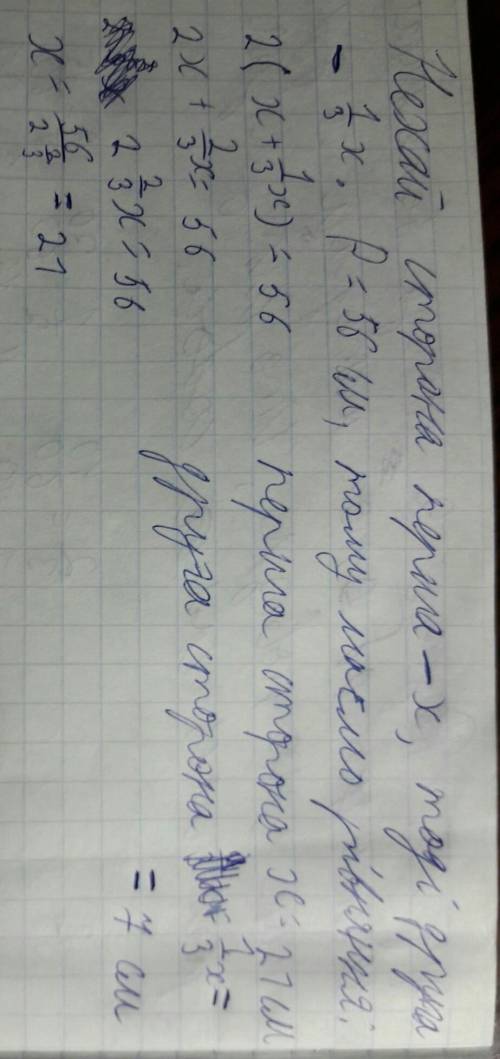 Нехай сторона перша – х, тоді друга
- 1/3 х. P = 56 см, тому маємо рівняння:
2(x + 1/3 x) = 56
2x + 2/3 x = 56
2 2/3 x = 56
x = 56 / 2 2/3 = 21
перша сторона x = 21 см
друга сторона 1/3 x =
= 7 см